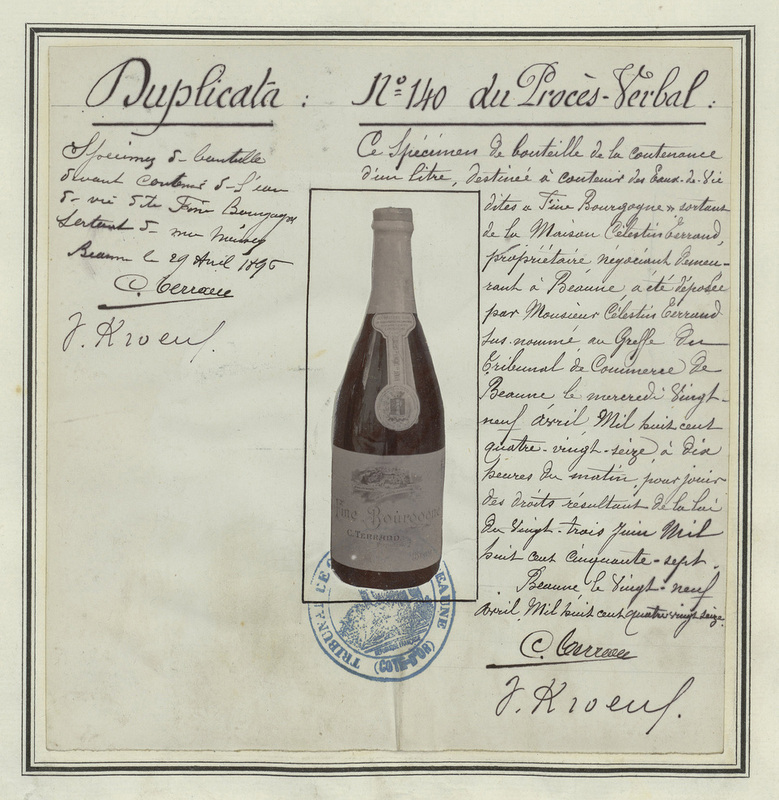 Duplicata : N° 140 du Procès-Verbal :
Spécimen de bouteille
devant contenir de l'eau
de vie dite Fine Bourgogne
sortant de ma maison
Beaune le 29 Avril 1896
C. Terrand
J. Kroeuf.
Ce Spécimen de bouteille de la contenance
d'un litre, destinée à contenir des Eaux-de-Vie
dites « Fine Bourgogne » sortant
de la Maison Célestin Terrand,
propriétaire négociant demeu-
rant à Beaune a été déposée
par Monsieur Célestin Terrand
sus-nommé, au Greffe du
Tribunal de Commerce de
Beaune le mercredi Vingt-
neuf Avril, Mil huit cent
quatre-vingt-seize à dix
heures du matin, pour jouir
des droits résultant de la loi
du Vingt-trois Juin Mil
huit cent cinquante-sept.
Beaune, le Vingt-neuf
Avril, Mil huit cent quatre vingt seize.
C. Terrand
Fine Bourgogne
C. TERRAND
TRIBUNAL DE BEAUNE
(CÔTE-D'OR)